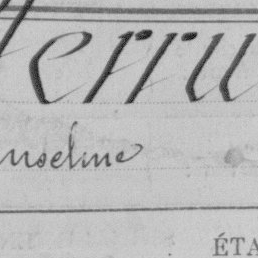 erru
nselme
ÉTA